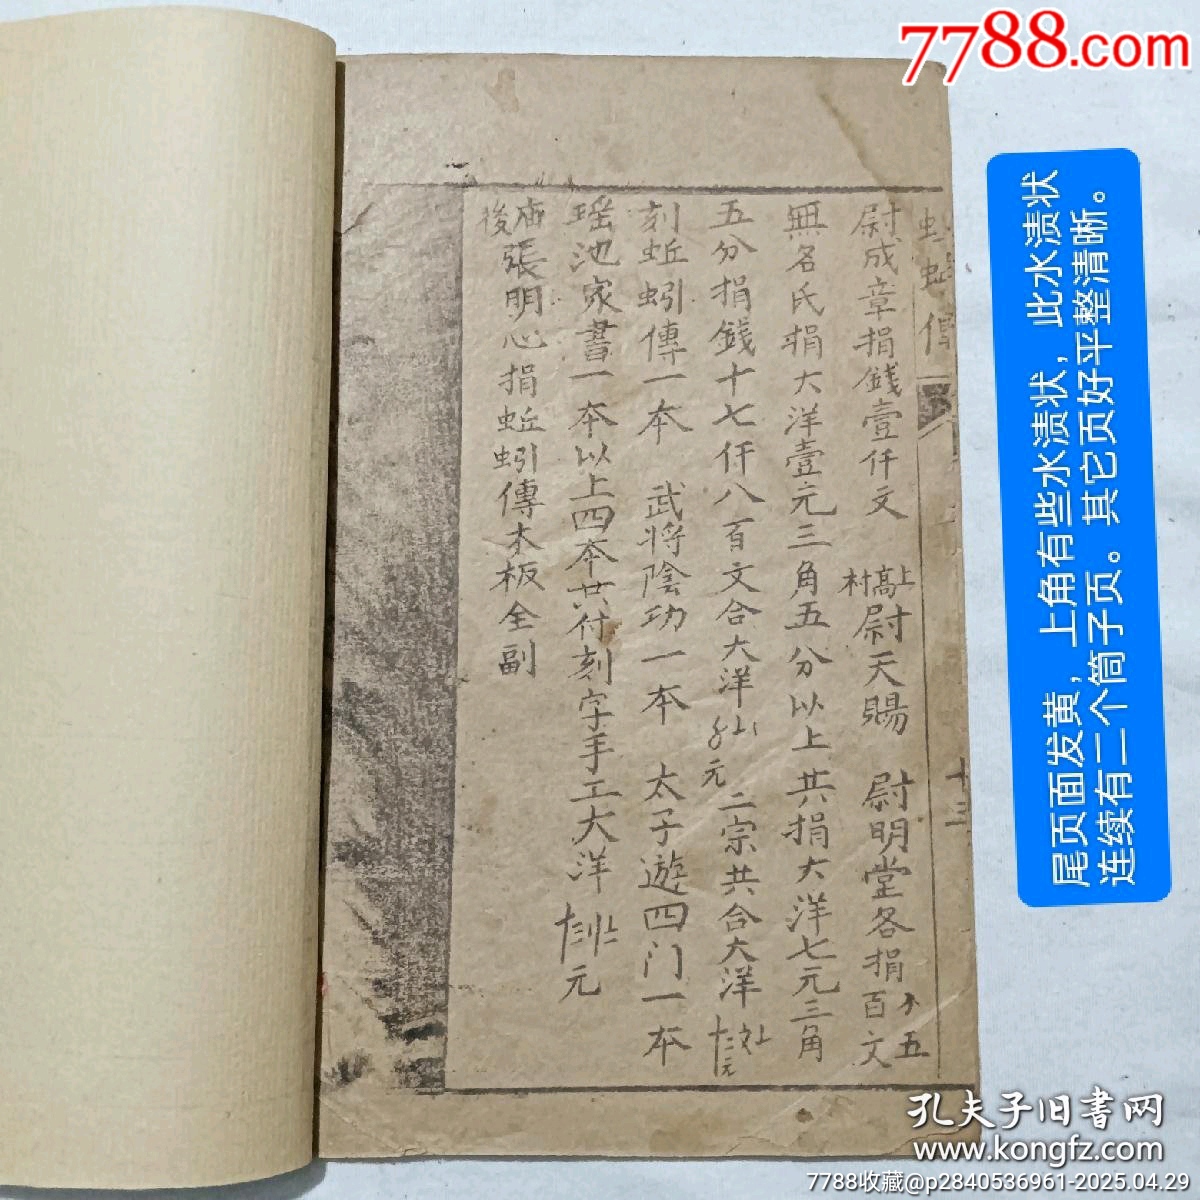 7788.com
尾页面发黄，上角有些水渍状，此水渍状
连续有二个筒子页。其它页好平整清晰。
蚯蚓傳
十三
尉成章捐錢壹仟文 上高村 尉天賜 尉明堂各捐 五百文
無名氏捐大洋壹元三角五分以上共捐大洋七元三角
五分捐錢十七仟八百文合大洋 元 二宗共合大洋 元
刻蚯蚓傳一本 武將陰功一本 太子遊四门一本
瑶池家書一本以上四本共付刻字手工大洋 元
後 張明心捐蚯蚓傳木板全副
孔夫子旧书网
www.kongfz.com
7788收藏@p2840536961-2025.04.29